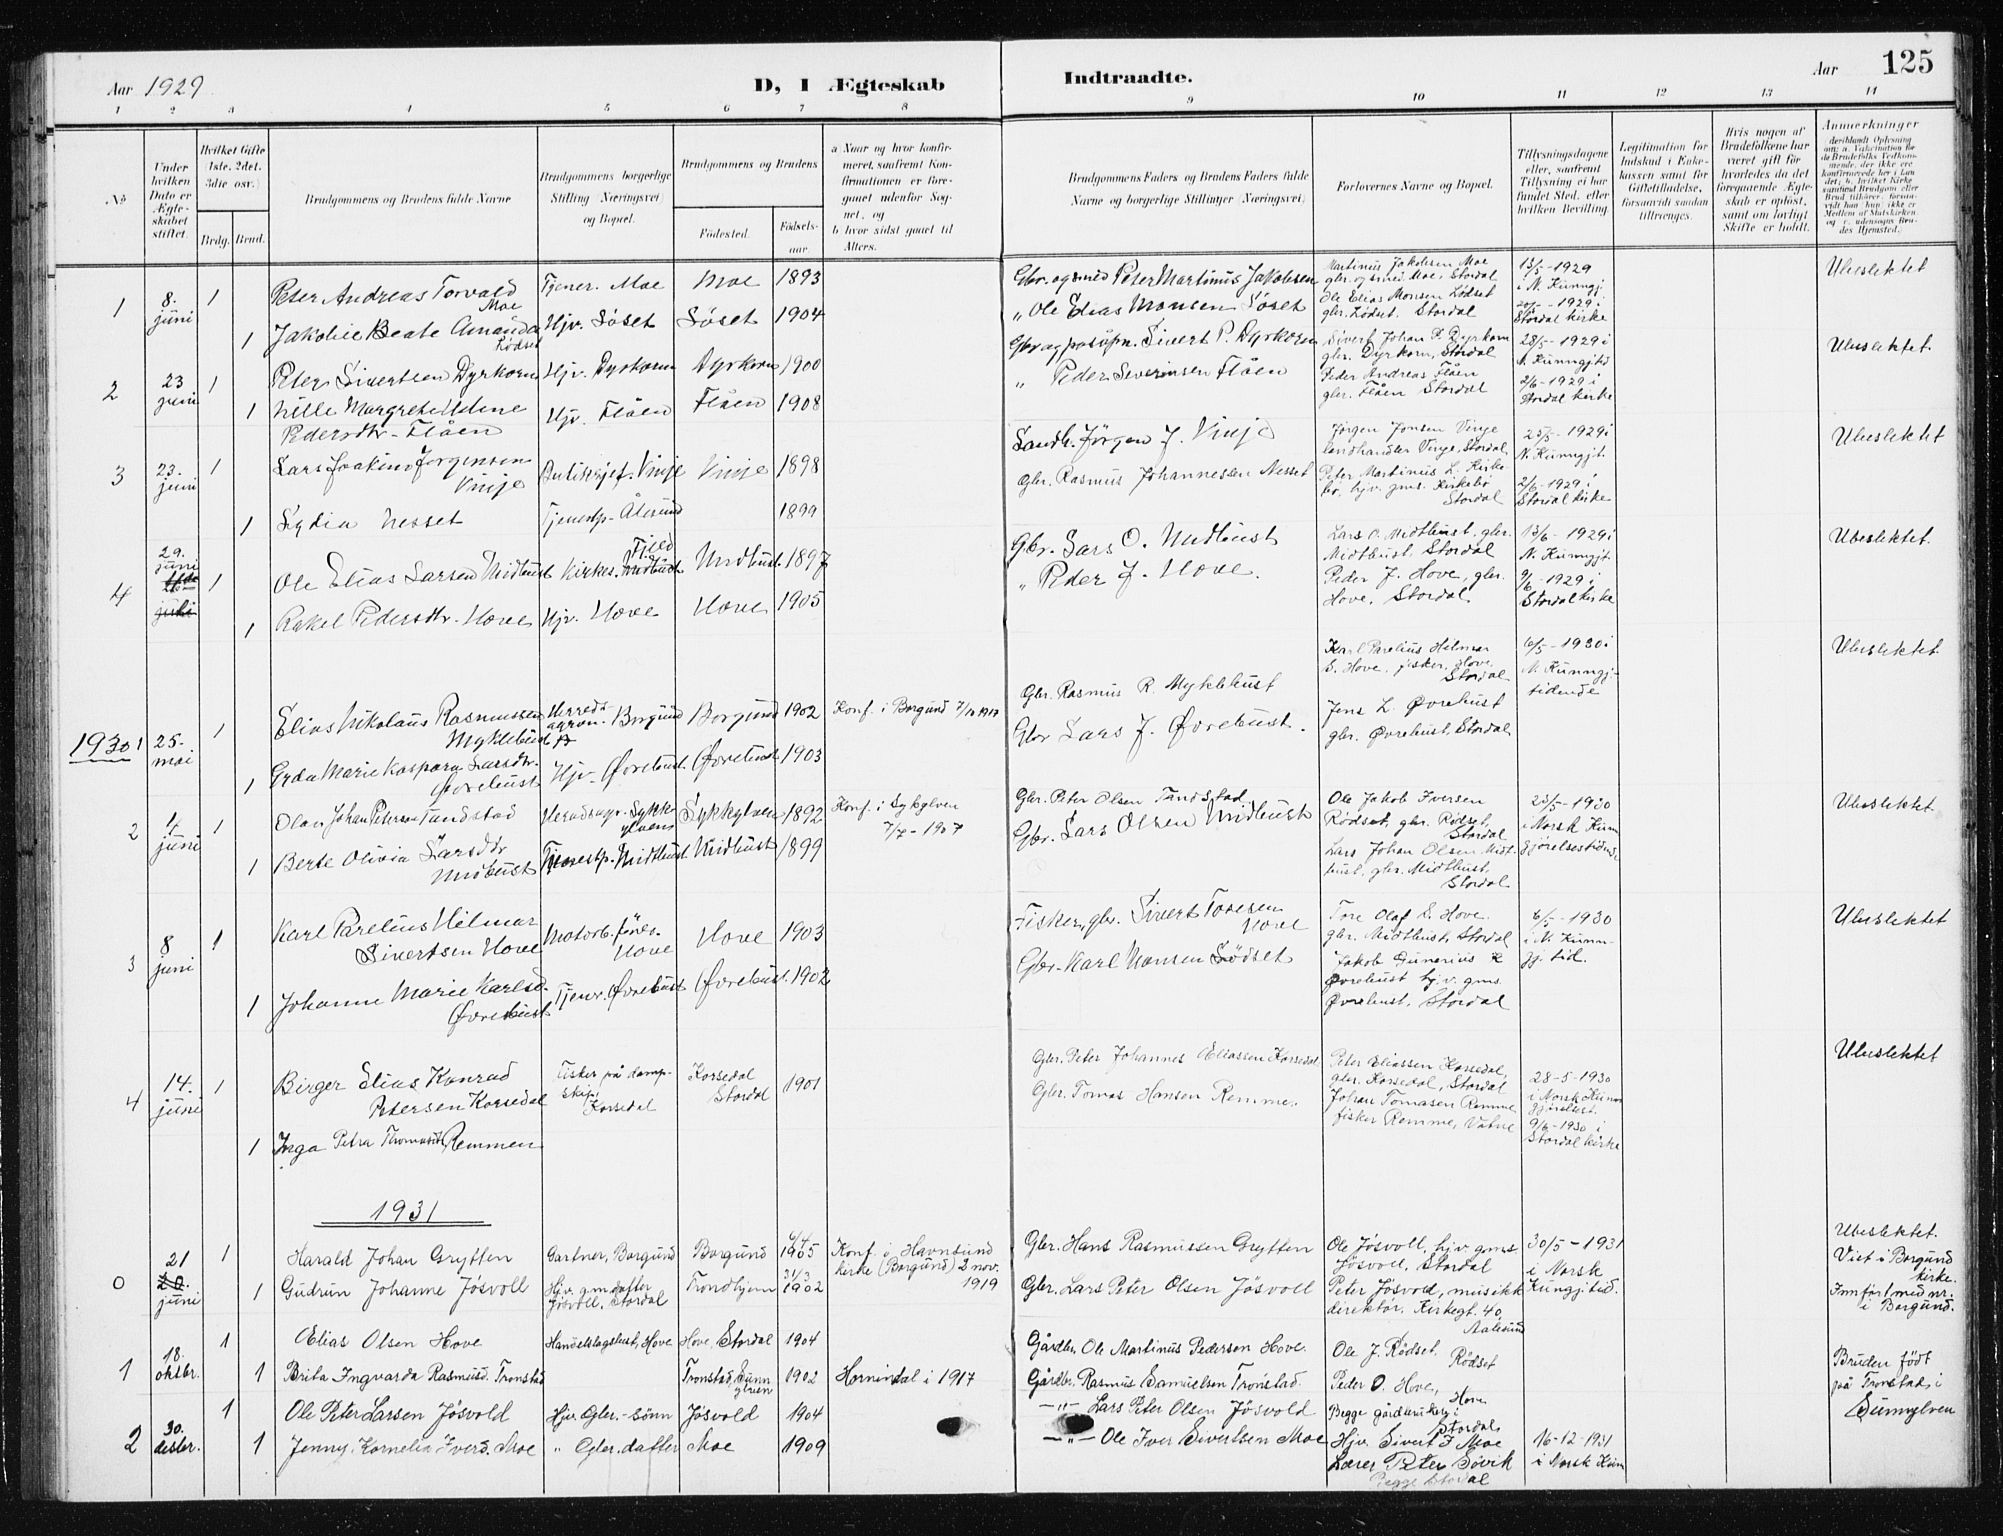 Aar 1929
D, I Ægteskab Indtraadte.
Aar 125
1 2 3 4 5 6 7 8 9 10 11 12 13 14
No
Under hvilken Dato er Ægteskabet stiftet.
Hvilket Gifte (1ste, 2det, 3die osv.)
Brdg. Brud.
Brudgommens og Brudens fulde Navne
Brudgommens borgerlige Stilling (Næringsvei) og Bopæl.
Brudgommens og Brudens
Fødested. Fødselsaar.
a Naar og hvor konfirmeret, saafremt Konfirmationen er foregaaet udenfor Sognet, og
b hvor sidst gaaet til Alters.
Brudgommens Faders og Brudens Faders fulde Navne og borgerlige Stillinger (Næringsvei)
Forlovernes Navne og Bopæl.
Tillysningsdagene eller, saafremt Tillysning ei har fundet Sted, efter hvilken Bevilling.
Legitimation for Indskud i Enkekassen samt for Giftetilladelse, forsaavidt saadan tiltrænges.
Hvis nogen af Brudefolkene har været gift før hvorledes da det foregaaende Ægteskab er opløst, samt om lovligt Skifte er holdt.
Anmerkninger
1 8. juni 1 Peter Andreas Torvald Moe Tjener. Moe Moe 1893 Gbr. og smed Peter Martinus Jakobsen
Martinus Jakobsen Moe gbr. og smed Moe, Stordal 13/5 - 1929 i N. Kunngj. Ubeslektet
1 Jakobie Beate Amanda Lødset Hjv. Løset Løset 1904 " Ole Elias Monsen Løset
Ole Elias Monsen Lødset gbr. Lødset, Stordal - 1929 i Stordal kirke
2 23 juni 1 Peter Sivertsen Dyrkorn Hjv. Dyrkorn Dyrkorn 1900 Gbr og poståpn. Sivert P. Dyrkorn
Sivert Johan P. Dyrkorn gbr. Dyrkorn, Stordal 28/5 - 1929 i N. Kunngjtid Ubeslektet
1 Lille Margrete Pedersdtr. Flåen Hjv. Flåen Flåen 1908 " Peder Severinsen Flåen
Peder Andreas Flåen gbr. Flåen Stordal 2/6 - 1929 i Stordal kirke
3 23. juni 1 Lars Joakim Jørgensen Vinje Butikkjef. Vinje Vinje 1898 Landh. Jørgen J. Vinje
Jørgen Jonsen Vinje landhandler Vinje, Stordal, 25/5 - 1929 i N. Kunngjt. Ubeslektet
1 Lydia Nesset Tjenestp. Ålesund 1899 gbr. Rasmus Johannessen Nesset
Peter Martinus L. Kirkebø, hjv. gms. Kirkebø Stordal 2/6 - 1929 i Stordal kirke
4 29. juni 1 Ole Elias Larsen Midbust Kirkes. Midbust Fjeld Midbust 1897 Gbr. Lars O. Midbust
Lars O. Midtbust, gbr. Midtbust, Stordal 13/6 - 1929 i N. Kunngjt. Ubeslektet.
1 Rakel Pedersdtr. Hove Hjv. Hove Hove 1905 " Peder J. Hove.
Peder J. Hove, gbr. Hove, Stordal 9/6 - 1929 i Stordal kirke
1930 1 25. mai 1 Elias Nikolaus Rasmussen Myklebust Herredsagron. Borgund Borgund 1902 Konf. i Borgund 7/10 1917 Gbr. Rasmus R. Myklebust
Karl Parelius Hilmar S. Hove, fisker, Hove, Stordal 6/5 - 1930 i N. Kunngj.tidende Ubeslektet
1 Gyda Marie Kaspara Larsdtr. Øvrebust Hjv. Øvrebust Øvrebust 1903 Gbr Lars J. Øvrebust.
Jens L. Øvrebust gbr. Øvrebust, Stordal
2 4. juni 1 Olan Johan Petersen Tandstad Heradsagr. Sykkylven Sykkylven 1892 Konf. i Sykylven 7/7 - 1907 Gbr. Peter Olsen Tandstad
Ole Jakob Iversen Rødset, gbr. Rødset, Stordal 23/5 - 1930 i Norsk Kunngjørelsestidende Ubeslektet
1 Berte Olivia Larsdtr Midbust Tjenestp. Midtbust Midbust 1899 Gbr. Lars Olsen Midbust
Lars Johan Olsen Midtbust, gbr. Midtbust, Stordal
3 8 juni 1 Karl Parelius Hilmar Sivertsen Hove Motorb. fører. Hove Hove 1903 Fisker, gbr. Sivert Toresen Hove
Tore Olaf S. Hove gbr. Midtbust, Stordal 6/5 - 1930 i N. Kunngj. tid. Ubeslektet
1 Johanne Marie Karlsd. Øvrebust Tjen. Øvrebust Øvrebust. 1902 Gbr. Karl Monsen Lødset
Jakob Gunerius K Øvrebust hjv. gms. Øvrebust, Stordal
4 14. juni 1 Birger Elias Konrad Petersen Korsedal Fisker på dampskip, Korsedal Korsedal Stordal 1901 Gbr. Peter Johannes Eliassen Korsedal
Peter Eliassen Korsedal, gbr. Korsedal, Stordal 28-5-1930 i Norsk Kunngjørelsest. Ubeslektet
1 Inga Petra Thomasd. Remmen Gbr. Tomas Hansen Remme.
Johan Tomasen Remme fisker Remme, Vatne 9/6 - 1930 i Stordal kirke
1931
0 21 juni 1 Harald Johan Grytten Gartner, Borgund Borgund 6/4 1905 Konf. i Havnsund kirke (Borgund) 2 nov. 1919 Gbr. Hans Rasmussen Grytten
Ole Jøsvoll, hjv. gms. Jøsvoll, Stordal 30/5 - 1931 i Norsk Kungj.tid. Ubeslektet. Viet i Borgund kirke. Innført med nr. i Borgund.
1 Gudrun Johanne Jøsvoll Hjv. gm.datter Jøsvoll, Stordal Trondhjem 31/3 1902 Gbr. Lars Peter Olsen Jøsvoll
Peter Jøsvold, musikkdirektør, Kirkegt. 40, Aalesund
1 18. oktbr. 1 Elias Olsen Hove Handelslagsbest, Hove Hove, Stordal 1904 Gårdbr. Ole Martinus Pedersen Hove.
Ole J. Rødset. Rødset
1 Brita Ingvarda Rasmusd. Tronstad Tronstad, Sunnylven 1902 Hornindal i 1917 Gårdbr. Rasmus Samuelsen Tronstad.
Peder O. Hove, Hove Begge gårdbrukere, Stordal Bruden født på Tronstad, i Sunnylven
2 30. desbr. 1 Ole Peter Larsen Jøsvold Hjv. Gbr.-sønn Jøsvold 1904 —"— Lars Peter Olsen Jøsvold
1 Jenny Kornelia Iversd. Moe " Gbr. datter Moe 1909 —"— Ole Iver Sivertsen Moe
Hjv. Sivert I Moe Lærer Peter Søvik Begge Stordal 16-12-1931 i Norsk Kunn